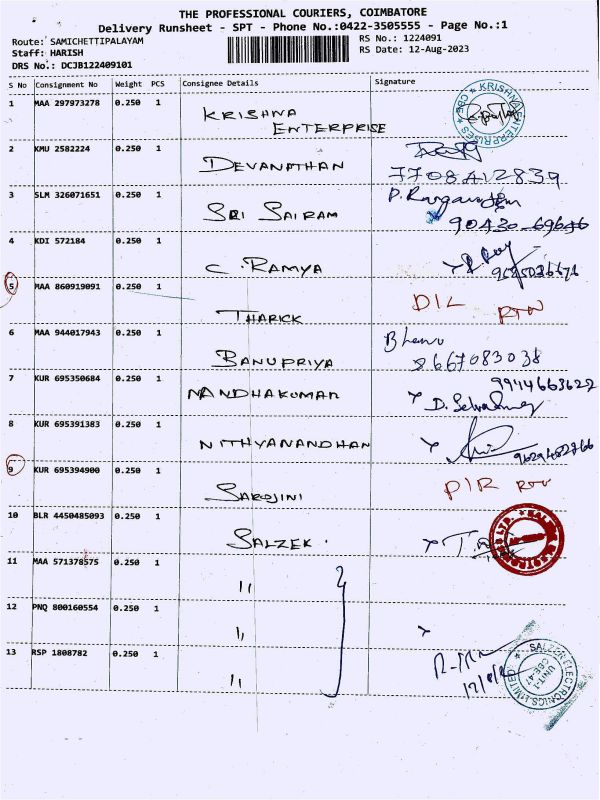 THE PROFESSIONAL COURIERS, COIMBATORE
Delivery Runsheet - SPT - Phone No.:0422-3505555 - Page No.:1
Route: SAMICHETTIPALAYAM
RS No.: 1224091
Staff: HARISH
RS Date: 12-Aug-2023
DRS No.: DCJB122409101
S No Consignment No Weight PCS Consignee Details Signature
1 MAA 297973278 0.250 1 KRISHNA
ENTERPRISE
KRISHNA ENTERPRISES CBE
2 KMU 2582224 0.250 1 DEVANATHAN
7708412839
3 SLM 326071651 0.250 1 SRI SAIRAM
90430-69646
4 KDI 572184 0.250 1 C. RAMYA
5 MAA 860919091 0.250 1 THARICK D/L RTN
6 MAA 944017943 0.250 1 BANUPRIYA Bhanu
8667083038
7 KUR 695350684 0.250 1 NANDHAKUMAR
9944663622
8 KUR 695391383 0.250 1 NITHYANANDHAN
9 KUR 695394900 0.250 1 SAROJINI D/R
10 BLR 4450485093 0.250 1 SALZEK.
11 MAA 571378575 0.250 1 "
12 PNQ 800160554 0.250 1 "
13 RSP 1808782 0.250 1 "
SALZER ELECTRONICS LIMITED
UNIT-1
CBE-47